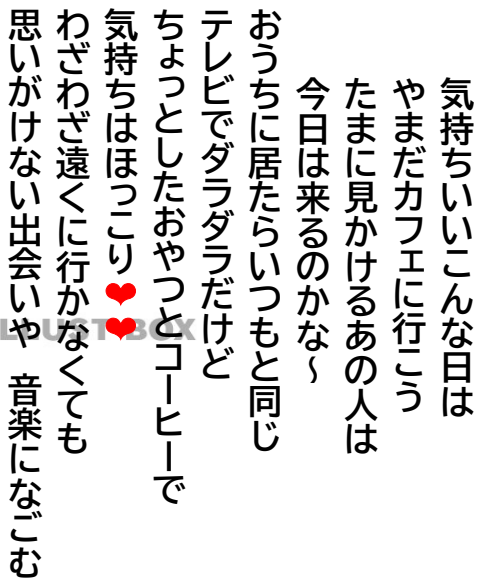 気持ちいいこんな日は
やまだカフェに行こう
たまに見かけるあの人は
今日は来るのかな～
おうちに居たらいつもと同じ
テレビでダラダラだけど
ちょっとしたおやつとコーヒーで
気持ちはほっこり❤❤
わざわざ遠くに行かなくても
思いがけない出会いや　音楽になごむ
ILLUST BOX